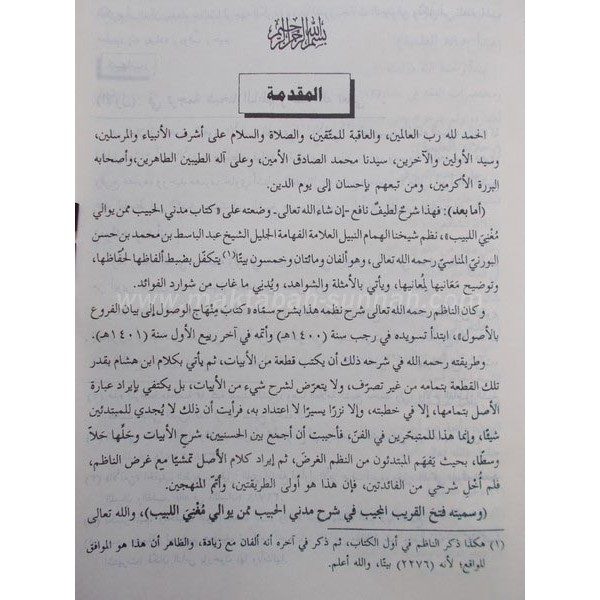 بسم الله الرحمن الرحيم
المقدمة
الحمد لله رب العالمين، والعاقبة للمتّقين، والصلاة والسلام على أشرف الأنبياء والمرسلين،
وسيد الأولين والآخرين، سيدنا محمد الصادق الأمين، وعلى آله الطيبين الطاهرين، وأصحابه
البررة الأكرمين، ومن تبعهم بإحسان إلى يوم الدين.
(أما بعد): فهذا شرحٌ لطيفٌ نافع -إن شاء الله تعالى- وضعته على «كتاب مدني الحبيب ممن يوالي
مُغْنِيَ اللبيب»، نظم شيخنا الهمام النبيل العلامة الفهامة الجليل الشيخ عبد الباسط بن محمد بن حسن
البورنيّ المناسيّ رحمه الله تعالى، وهو ألفان ومائتان وخمسون بيتًا(١) يتكفّل بضبط ألفاظها لحُفّاظها،
وتوضيح مَعَانيها لِمُعانيها، ويأتي بالأمثلة والشواهد، ويُدني ما غاب من شوارد الفوائد.
وكان الناظم رحمه الله تعالى شرح نظمه هذا بشرح سمّاه «كتاب مِنْهَاج الوصول إلى بيان الفروع
بالأصول»، ابتدأ تسويده في رجب سنة (١٤٠٠هـ) وأتمه في آخر ربيع الأول سنة (١٤٠١هـ).
وطريقته رحمه الله في شرحه ذلك أن يكتب قطعة من الأبيات، ثم يأتي بكلام ابن هشام بقدر
تلك القطعة بتمامه من غير تصرّف، ولا يتعرّض لشرح شيء من الأبيات، بل يكتفي بإيراد عبارة
الأصل بتمامها، إلا في خطبته، وإلا نزرًا يسيرًا لا اعتداد به، فرأيت أن ذلك لا يُجدي للمبتدئين
شيئًا، وإنما هذا للمتبحّرين في الفنّ، فأحببت أن أجمع بين الحسنيين، شرحِ الأبيات وحَلِّها حَلاًّ
وسطًا، بحيث يَفهَم المبتدئون من النظم الغرضَ، ثم إيرادِ كلام الأصل تمشيًا مع غرض الناظم،
فلم أُخْلِ شرحي من الفائدتين، فإن هذا هو أولى الطريقتين، وأتمّ المنهجين.
(وسميته فتحَ القريب المجيب في شرح مدني الحبيب ممن يوالي مُغْنِيَ اللبيب)، والله تعالى
(١) هكذا ذكر الناظم في أول الكتاب، ثم ذكر في آخره أنه ألفان مع زيادة، والظاهر أن هذا هو الموافق
للواقع؛ لأنه (٢٢٧٦) بيتًا، والله أعلم.